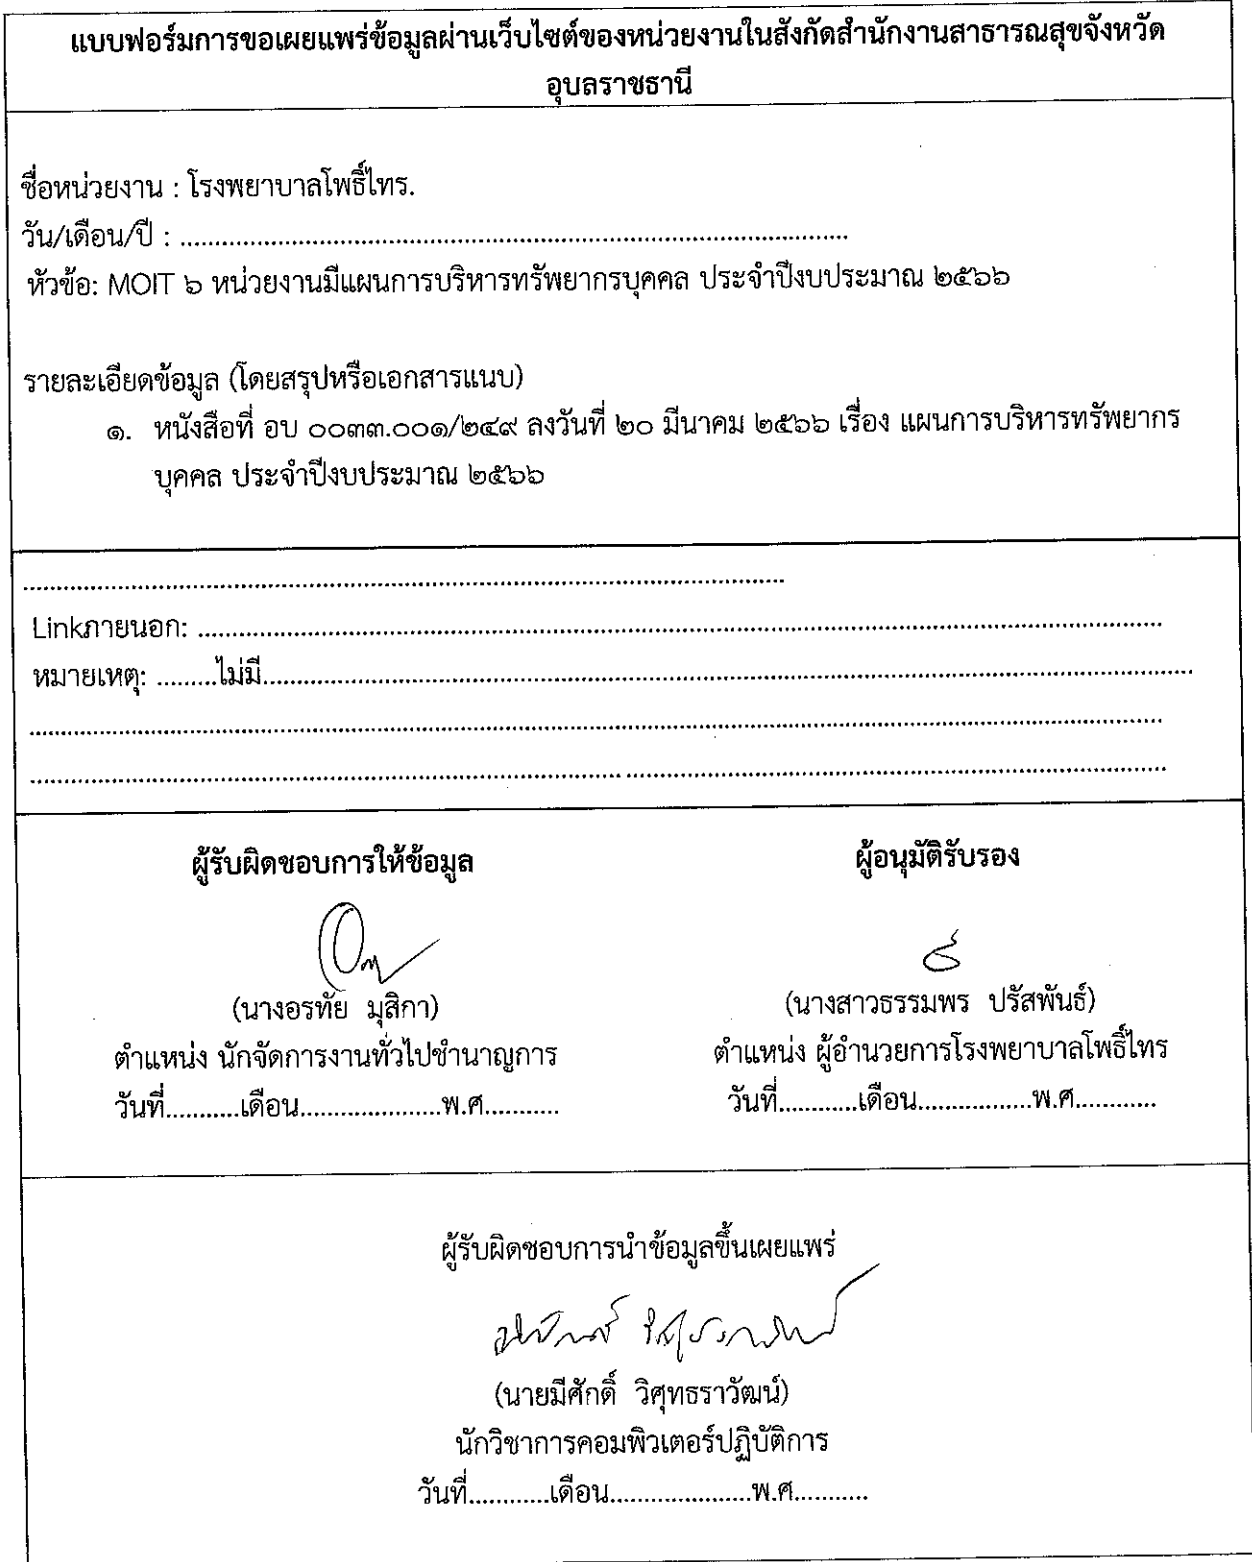 แบบฟอร์มการขอเผยแพร่ข้อมูลผ่านเว็บไซต์ของหน่วยงานในสังกัดสำนักงานสาธารณสุขจังหวัด
อุบลราชธานี
ชื่อหน่วยงาน : โรงพยาบาลโพธิ์ไทร.
วัน/เดือน/ปี : ................................................................................................
หัวข้อ: MOIT ๖ หน่วยงานมีแผนการบริหารทรัพยากรบุคคล ประจำปีงบประมาณ ๒๕๖๖
รายละเอียดข้อมูล (โดยสรุปหรือเอกสารแนบ)
๑. หนังสือที่ อบ ๐๐๓๓.๐๐๑/๒๔๙ ลงวันที่ ๒๐ มีนาคม ๒๕๖๖ เรื่อง แผนการบริหารทรัพยากร
บุคคล ประจำปีงบประมาณ ๒๕๖๖
................................................................................................................
Linkภายนอก: ................................................................................................................
หมายเหตุ: .........ไม่มี................................................................................................................
................................................................................................................
................................................................................................................
ผู้รับผิดชอบการให้ข้อมูล ผู้อนุมัติรับรอง
(นางอรทัย มุสิกา) (นางสาวธรรมพร ปรัสพันธ์)
ตำแหน่ง นักจัดการงานทั่วไปชำนาญการ ตำแหน่ง ผู้อำนวยการโรงพยาบาลโพธิ์ไทร
วันที่...........เดือน.....................พ.ศ........... วันที่............เดือน.................พ.ศ............
ผู้รับผิดชอบการนำข้อมูลขึ้นเผยแพร่
(นายมีศักดิ์ วิศุทธราวัฒน์)
นักวิชาการคอมพิวเตอร์ปฏิบัติการ
วันที่............เดือน.....................พ.ศ...........